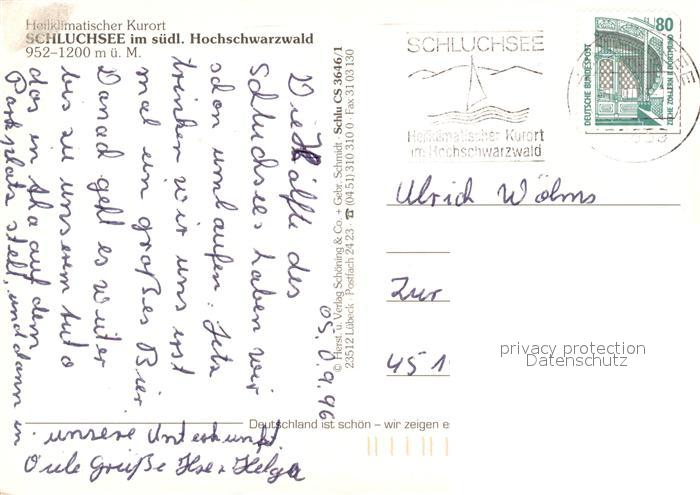 Heilklimatischer Kurort
SCHLUCHSEE im südl. Hochschwarzwald
952-1200 m ü. M.
05.09.96
Die Hälfte des
Schluchsees haben wir
schon umlaufen. Jetz
trinken wir uns erst
mal ein großes Bier.
Danach geht es weiter
bis zu unserem Auto
das in Aha auf dem
Parkplatz steht, und dann in
unsere Unterkunft.
Viele Grüße Ilse + Helga
© Herst. u. Verlag Schöning & Co. + Gebr. Schmidt · Schlu CS 3646/1
23512 Lübeck · Postfach 24 23 · ☎ (04 51) 310 310 · Fax 31 03 130
Deutschland ist schön – wir zeigen e
SCHLUCHSEE
Heilklimatischer Kurort
im Hochschwarzwald
80
DEUTSCHE BUNDESPOST
ZECHE ZOLLERN II DORTMUND
Ulrich Wölms
Zur
45 1
privacy protection
Datenschutz